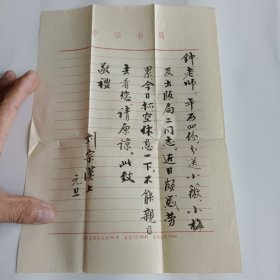 中华书局
钟老师：平历四份，分送小薇、小梅
及出版局二同志。近日颇感劳
累，今日拟空休息一下，不能亲自
去看您，请原谅。此致
敬礼
刘宗汉上
元旦